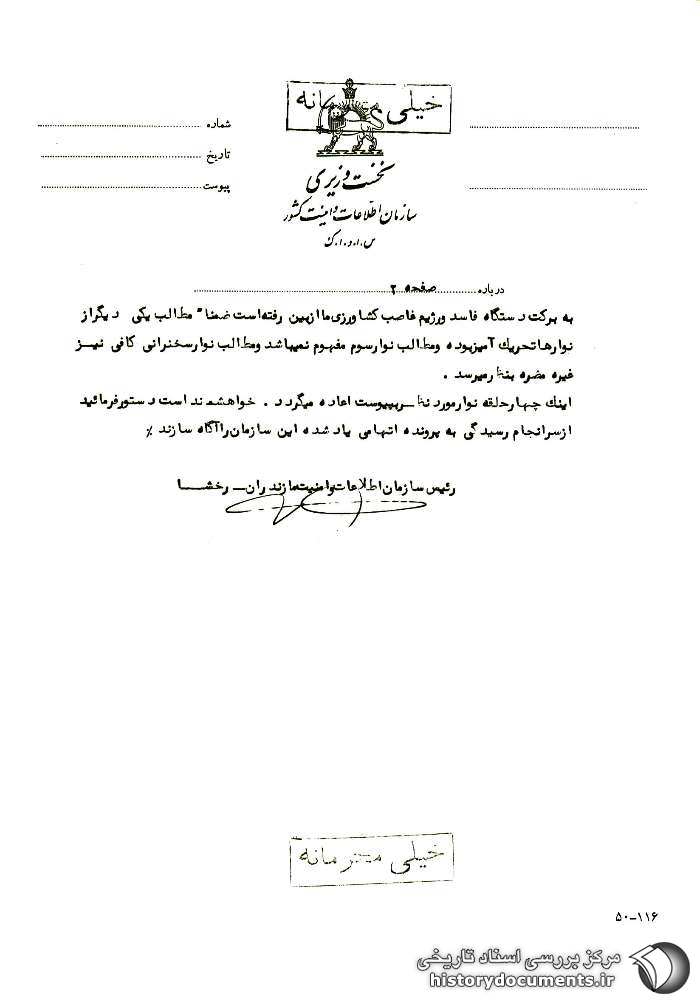 خیلی محرمانه
شماره
تاریخ
پیوست
نخست وزیری
سازمان اطلاعات و امنیت کشور
س.ا.و.ا.ک
درباره صفحه ۲
به برکت دستگاه فاسد ورژیم غاصب کشاورزی ما ازبین رفته است ضمنا" مطالب یکی دیگراز
نوارها تحریک آمیزبوده ومطالب نوارسوم مفهوم نمیباشد ومطالب نوارسخنرانی کافی نیز
غیره مضره بنظر میرسد .
اینک چهارحلقه نوارمورد نظر بپیوست اعاده میگردد . خواهشمند است دستورفرمائید
ازسرانجام رسیدگی به پرونده اتهامی یاد شده این سازمان راآگاه سازند ٪
رئیس سازمان اطلاعات وامنیت مازندران_ رخشا
خیلی محرمانه
۵۰-۱۱۶
مرکز بررسی اسناد تاریخی
historydocuments.ir